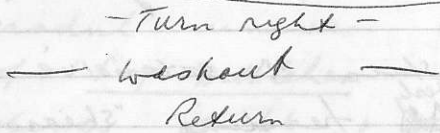 - Turn right -
— Washout —
Return